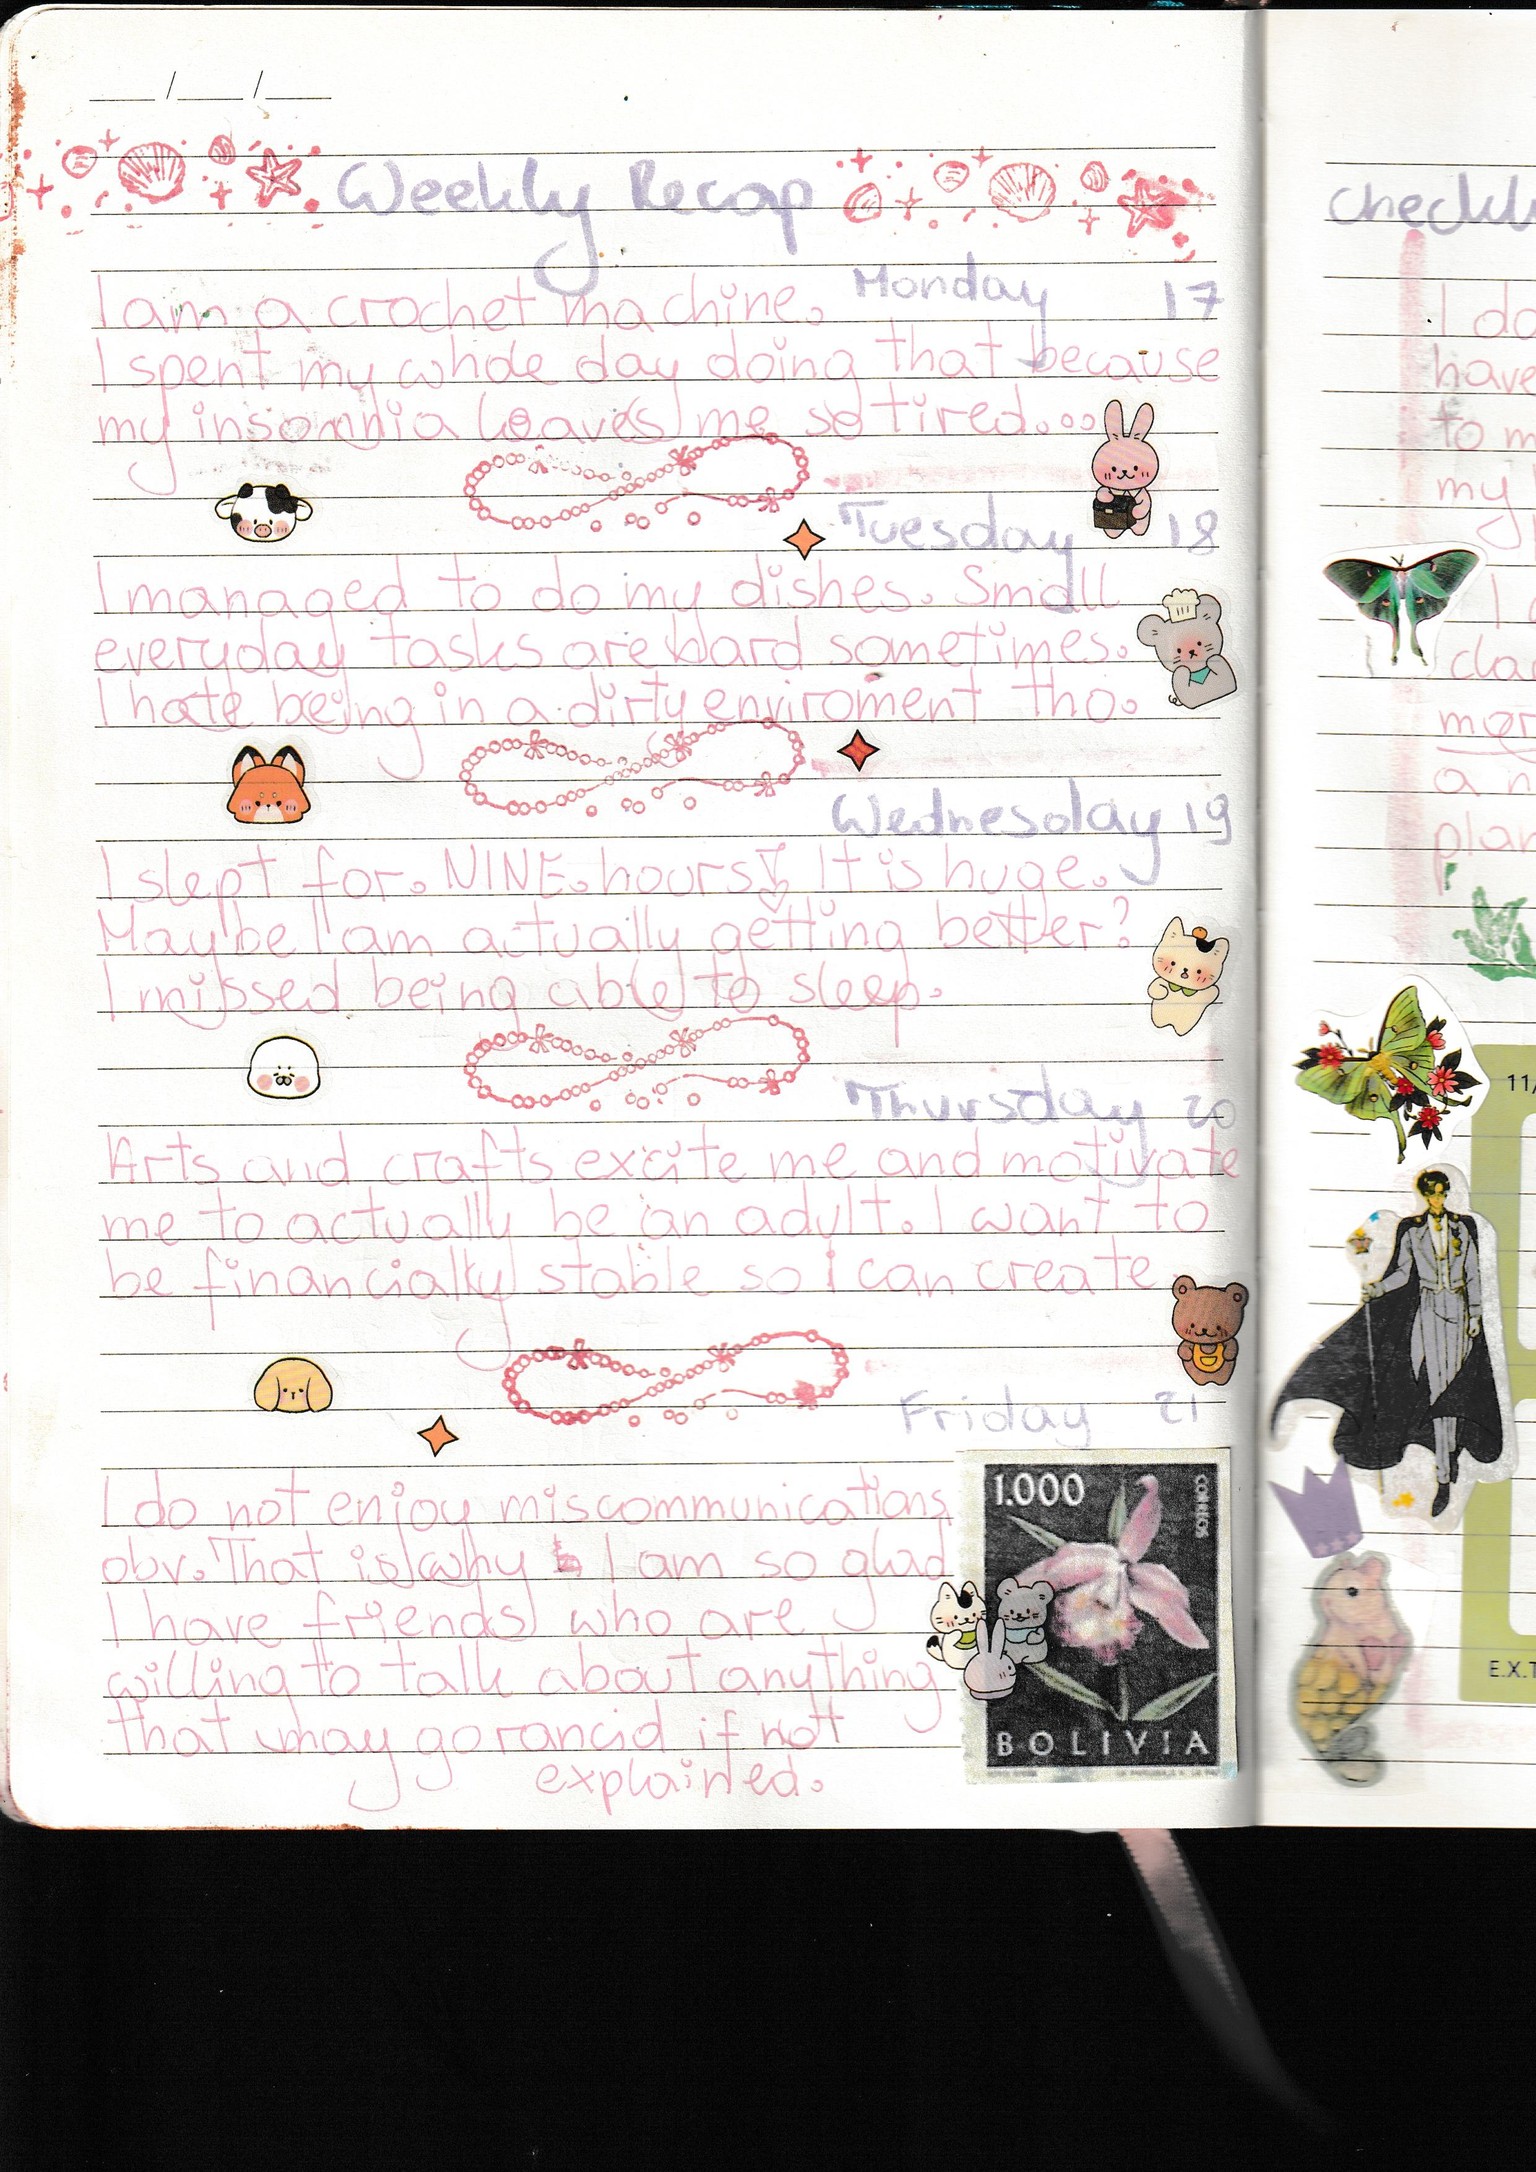 Weekly Recap
Monday 17
I am a crochet machine.
I spent my whole day doing that because
my insomnia leaves me so tired...
Tuesday 18
I managed to do my dishes. Small
everyday tasks are hard sometimes.
I hate being in a dirty enviroment tho.
Wednesday 19
I slept for. NINE. hours! It is huge.
Maybe I am actually getting better?
I missed being able to sleep.
Thursday 20
Arts and crafts excite me and motivate
me to actually be an adult. I want to
be financially stable so i can create
Friday 21
I do not enjoy miscommunications
obv. That is why I am so glad
I have friends who are
willing to talk about anything
that may go rancid if not
explained.
1.000
CORREOS
BOLIVIA
I do
have
to m
my
11/
E.X.T